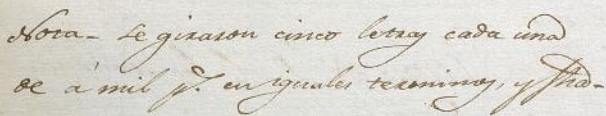 Nota- Se giraron cinco letras cada una
de á mil p.s en iguales terminos, y fha-